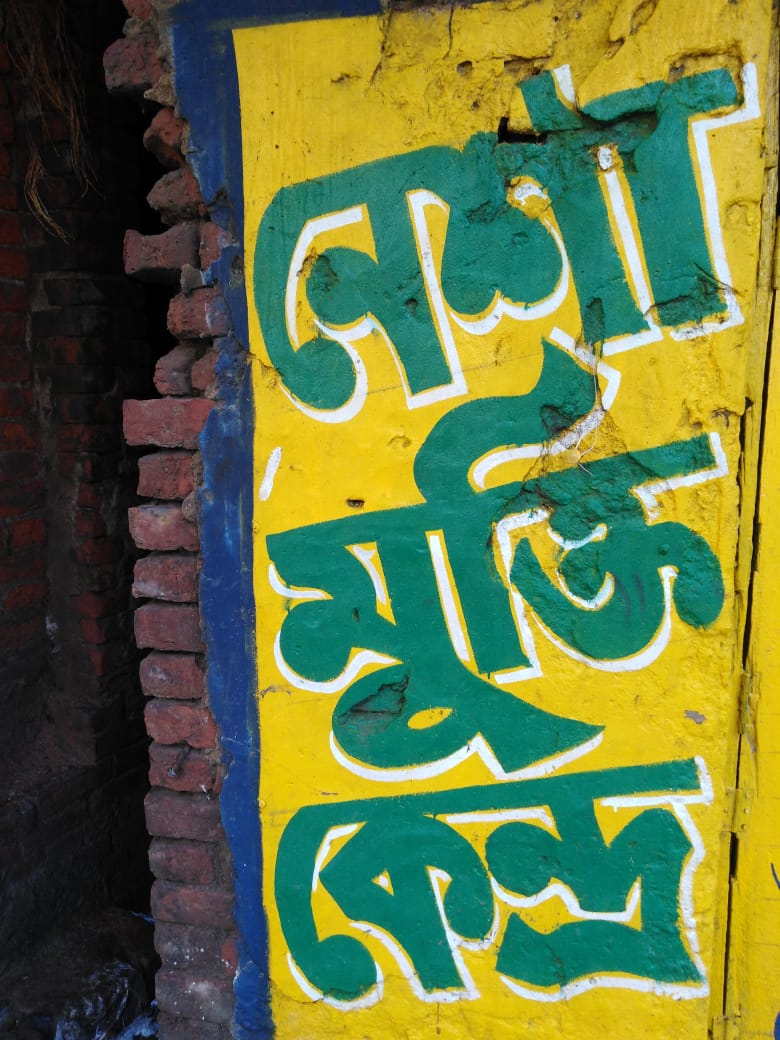 নেশা
মুক্তি
কেন্দ্র